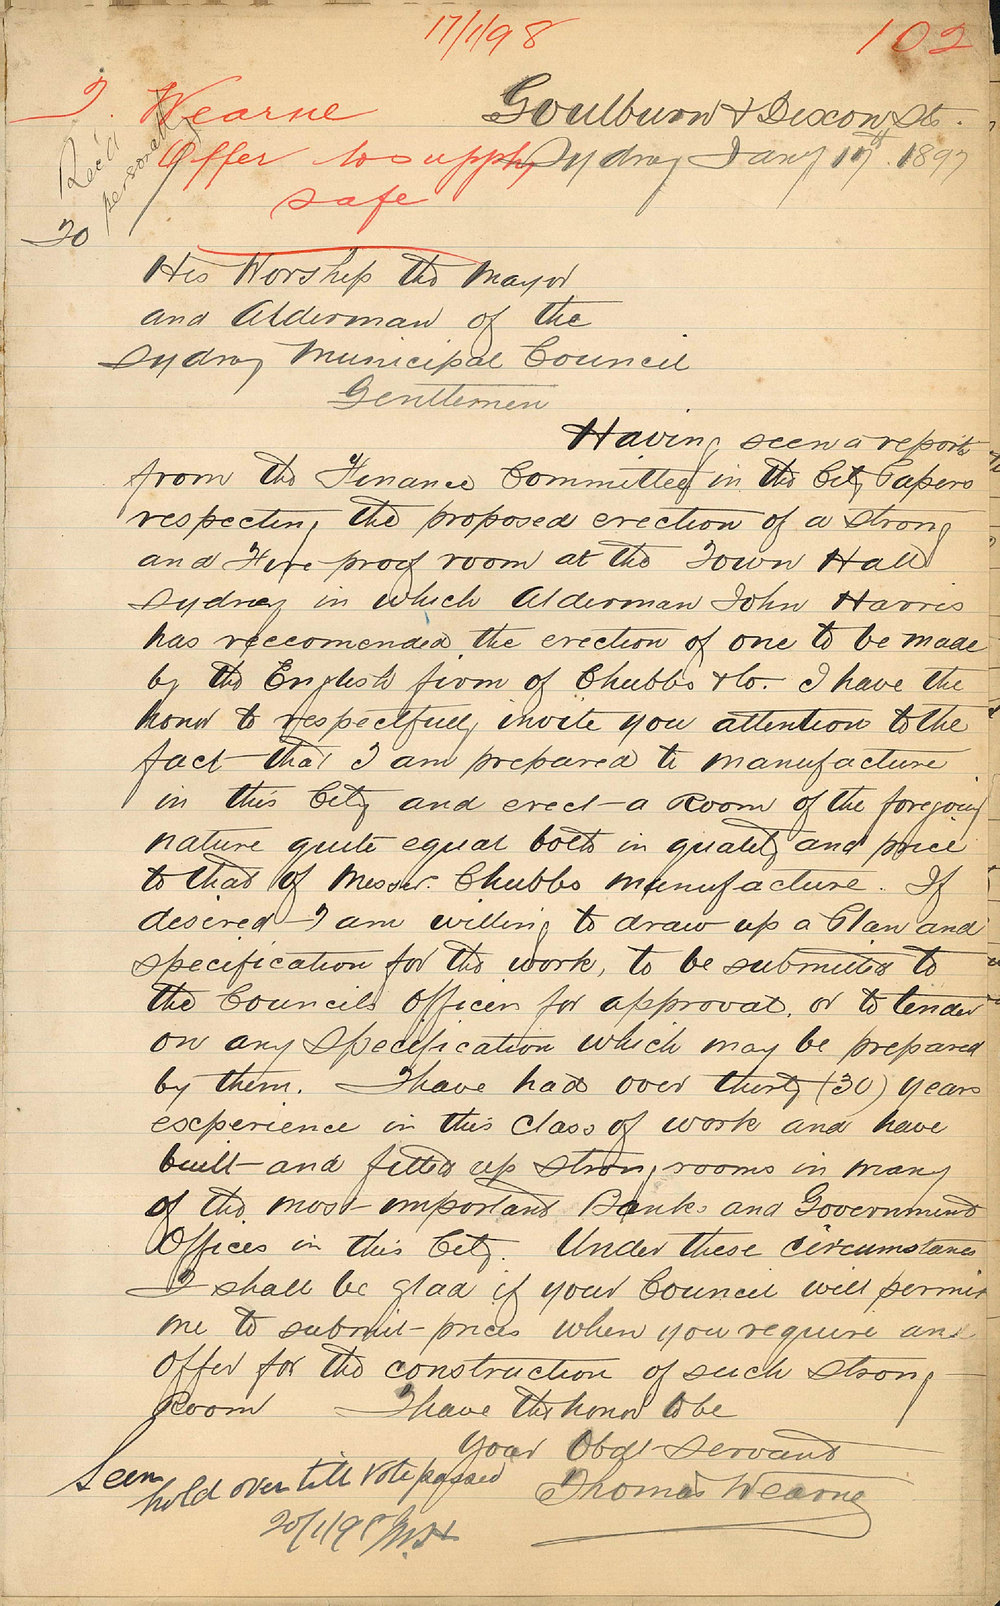 17/1/98
102
T. Wearne
Offer to supply
safe
Rec'd
personally
Goulburn & Dixon Sts.
Sydney Jany 17th 1897
To
His Worship the Mayor
and Alderman of the
Sydney Municipal Council
Gentlemen
Having seen a report
from the Finance Committee in the City Papers
respecting the proposed erection of a strong
and Fire proof room at the Town Hall
Sydney in which Alderman John Harris
has reccomended the erection of one to be made
by the English firm of Chubbs & Co. I have the
honor to respectfully invite you attention to the
fact that I am prepared to manufacture
in this City and erect a Room of the foregoing
nature quite equal both in quality and price
to that of Messrs. Chubbs manufacture. If
desired I am willing to draw up a Plan and
specification for the work, to be submitted to
the Councils officers for approval, or to tender
on any specification which may be prepared
by them. I have had over thirty (30) years
experience in this class of work and have
built and fitted up strong rooms in many
of the most important Banks and Government
Offices in this City. Under these circumstances
I shall be glad if your Council will permit
me to submit prices when you require and
offer for the construction of such strong
Room I have the honor to be
Your Obdt Servant
Thomas Wearne
Seen
hold over till vote passed
20/1/98